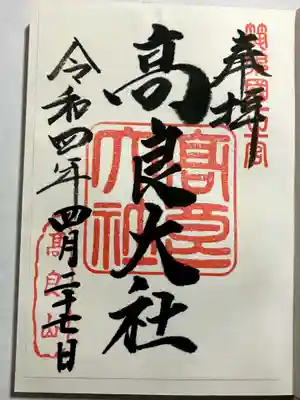 奉拝
筑後國一宮
高良大社
髙良大社
令和四年四月二十七日
高良山